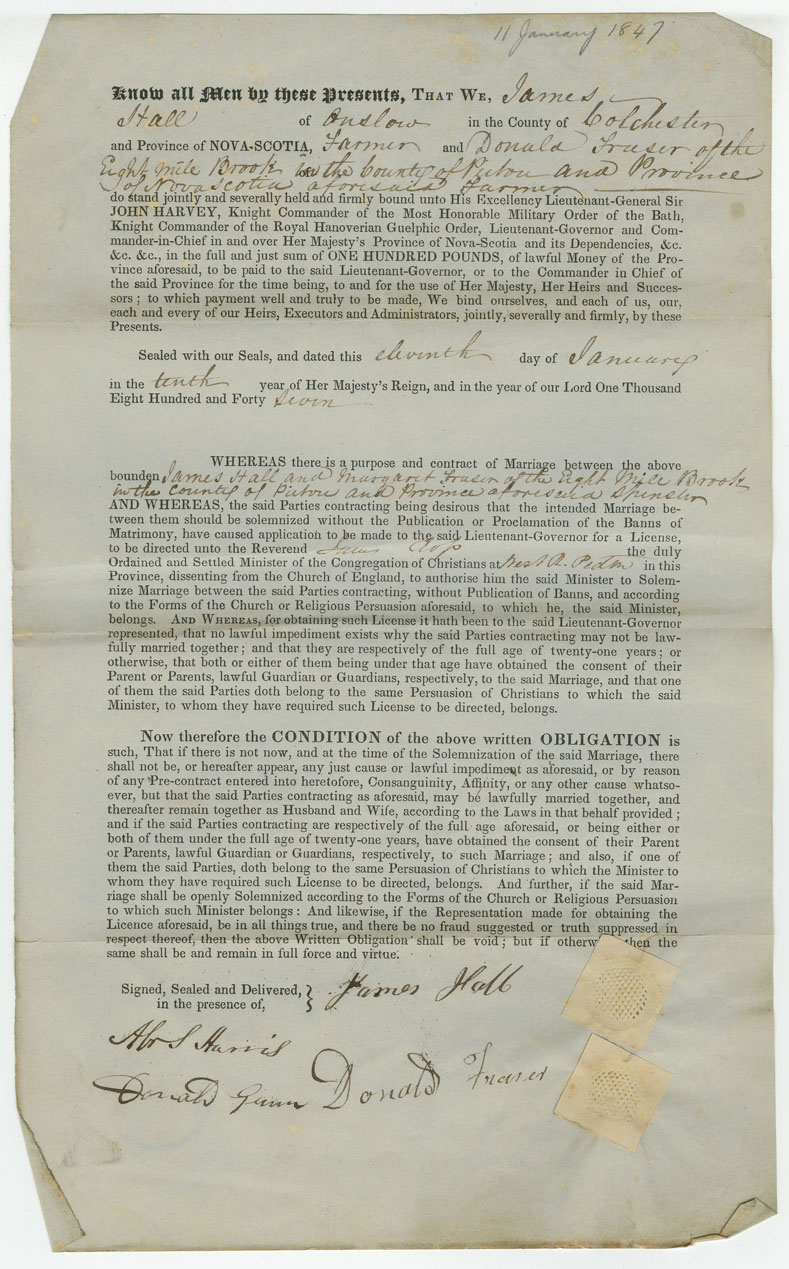 11 January 1847
Know all Men by these Presents, THAT WE, James
Hall of Onslow in the County of Colchester
and Province of NOVA-SCOTIA, Farmer and Donald Fraser of the
Eight Mile Brook in the County of Pictou and Province
of Nova Scotia aforesaid Farmer
do stand jointly and severally held and firmly bound unto His Excellency Lieutenant-General Sir
JOHN HARVEY, Knight Commander of the Most Honorable Military Order of the Bath,
Knight Commander of the Royal Hanoverian Guelphic Order, Lieutenant-Governor and Com-
mander-in-Chief in and over Her Majesty's Province of Nova-Scotia and its Dependencies, &c.
&c. &c., in the full and just sum of ONE HUNDRED POUNDS, of lawful Money of the Pro-
vince aforesaid, to be paid to the said Lieutenant-Governor, or to the Commander in Chief of
the said Province for the time being, to and for the use of Her Majesty, Her Heirs and Succes-
sors; to which payment well and truly to be made, We bind ourselves, and each of us, our,
each and every of our Heirs, Executors and Administrators, jointly, severally and firmly, by these
Presents.
Sealed with our Seals, and dated this elevinth day of January
in the tenth year of Her Majesty's Reign, and in the year of our Lord One Thousand
Eight Hundred and Forty Seven
WHEREAS there is a purpose and contract of Marriage between the above
bounden James Hall and Margaret Fraser of the Eight Mile Brook
in the County of Pictou and Province aforesaid Spinster
AND WHEREAS, the said Parties contracting being desirous that the intended Marriage be-
tween them should be solemnized without the Publication or Proclamation of the Banns of
Matrimony, have caused application to be made to the said Lieutenant-Governor for a License,
to be directed unto the Reverend the duly
Ordained and Settled Minister of the Congregation of Christians at West R. Pictou in this
Province, dissenting from the Church of England, to authorise him the said Minister to Solem-
nize Marriage between the said Parties contracting, without Publication of Banns, and according
to the Forms of the Church or Religious Persuasion aforesaid, to which he, the said Minister,
belongs. AND WHEREAS, for obtaining such License it hath been to the said Lieutenant-Governor
represented, that no lawful impediment exists why the said Parties contracting may not be law-
fully married together; and that they are respectively of the full age of twenty-one years; or
otherwise, that both or either of them being under that age have obtained the consent of their
Parent or Parents, lawful Guardian or Guardians, respectively, to the said Marriage, and that one
of them the said Parties doth belong to the same Persuasion of Christians to which the said
Minister, to whom they have required such License to be directed, belongs.
Now therefore the CONDITION of the above written OBLIGATION is
such, That if there is not now, and at the time of the Solemnization of the said Marriage, there
shall not be, or hereafter appear, any just cause or lawful impediment as aforesaid, or by reason
of any Pre-contract entered into heretofore, Consanguinity, Affinity, or any other cause whatso-
ever, but that the said Parties contracting as aforesaid, may be lawfully married together, and
thereafter remain together as Husband and Wife, according to the Laws in that behalf provided;
and if the said Parties contracting are respectively of the full age aforesaid, or being either or
both of them under the full age of twenty-one years, have obtained the consent of their Parent
or Parents, lawful Guardian or Guardians, respectively, to such Marriage; and also, if one of
them the said Parties, doth belong to the same Persuasion of Christians to which the Minister to
whom they have required such License to be directed, belongs. And further, if the said Mar-
riage shall be openly Solemnized according to the Forms of the Church or Religious Persuasion
to which such Minister belongs: And likewise, if the Representation made for obtaining the
Licence aforesaid, be in all things true, and there be no fraud suggested or truth suppressed in
respect thereof, then the above Written Obligation shall be void; but if otherw then the
same shall be and remain in full force and virtue.
Signed, Sealed and Delivered, } James Hall
in the presence of,
Abr S Harris
Donald Gunn Donald Fraser